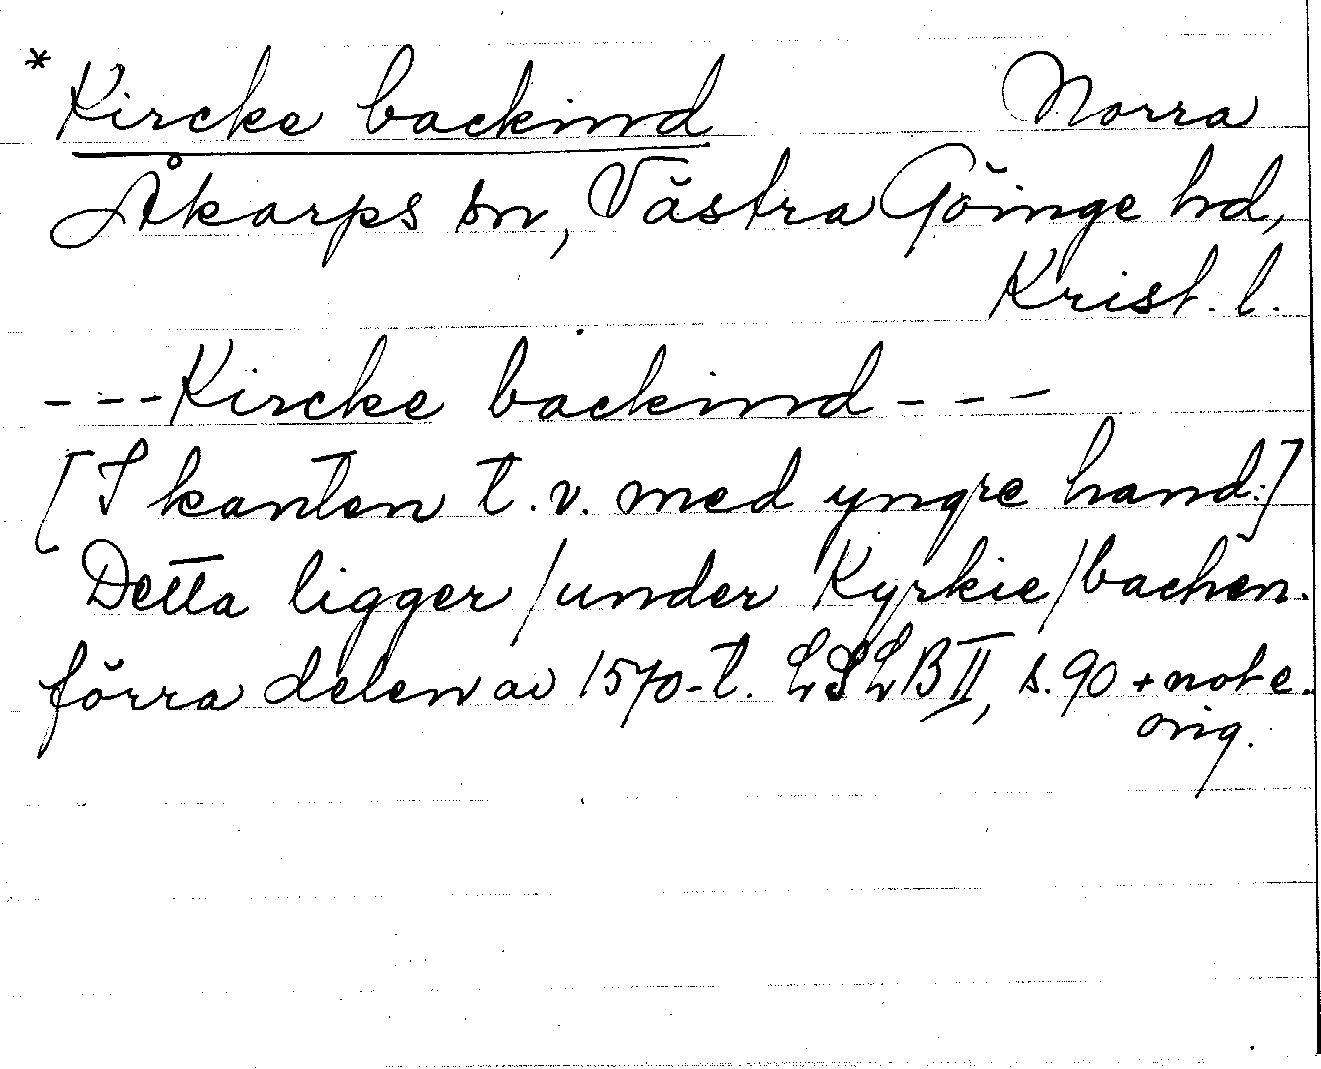 * Kircke backind Norra
Åkarps sn, Västra Göinge hd,
Krist. l.
---Kircke backind---
[I kanten t.v. med yngre hand:]
Detta ligger /under Kyrkie/bachen.
förra delen av 1570-t. LSLB II, s. 90 + note.
orig.